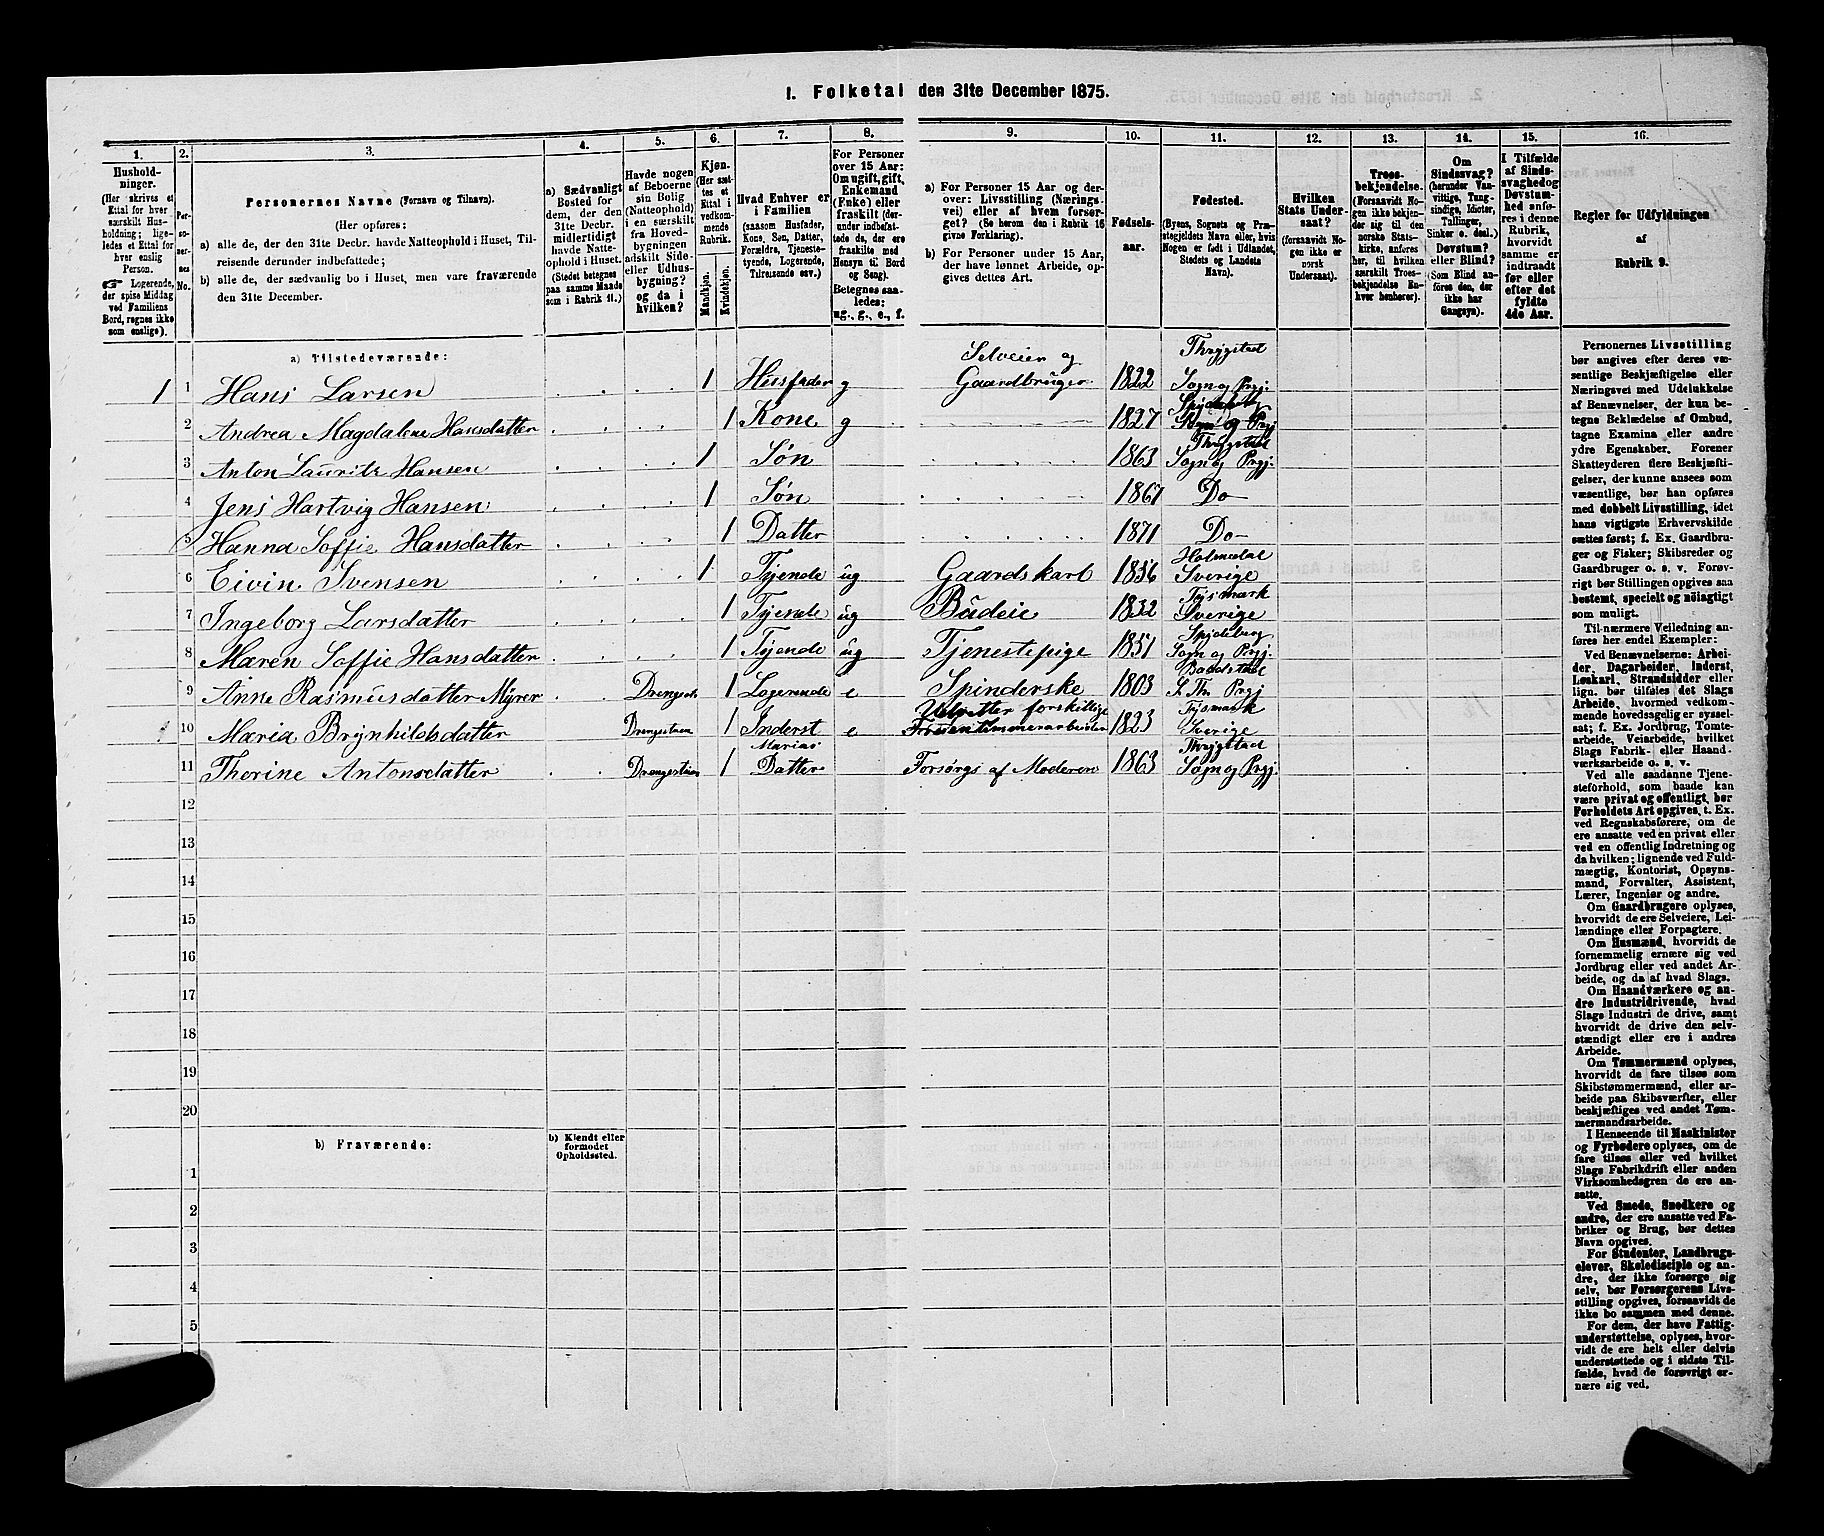 1. Folketal den 31te December 1875.
1. 2. 3. 4. 5. 6. 7. 8. 9. 10. 11. 12. 13. 14. 15. 16.
Husholdninger. (Her skrives et Ettal for hver særskilt Husholdning; ligeledes et Ettal for hver enslig Person. ☞ Logerende, der spise Middag ved Familiens Bord, regnes ikke som enslige).
Personernes No.
Personernes Navne (Fornavn og Tilnavn).
(Her opføres:
a) alle de, der den 31te Decbr. havde Natteophold i Huset, Tilreisende derunder indbefattede;
b) alle de, der sædvanlig bo i Huset, men vare fraværende den 31te December.
a) Sædvanligt Bosted for dem, der den 31te Decbr. midlertidigt havde Natteophold i Huset. (Stedet betegnes paa samme Maade som i Rubrik 11.)
Havde nogen af Beboerne sin Bolig (Natteophold) i en særskilt fra Hovedbygningen adskilt Side- eller Udhusbygning? og da i hvilken?
Kjøn. (Her sættes et Ettal i vedkommende Rubrik. Mandkjøn. Kvindekjøn.
Hvad Enhver er i Familien (saasom Husfader, Kone, Søn, Datter, Forældre, Tjenestetyende, Logerende, Tilreisende osv.)
For Personer over 15 Aar: Om ugift, gift, Enkemand (Enke) eller fraskilt (derunder indbefattede de, der ere fraskilte med Hensyn til Bord og Seng). Betegnes saaledes: ug., g., e., f.
a) For Personer 15 Aar og derover: Livsstilling (Næringsvei) eller af hvem forsørget? (Se herom den i Rubrik 16 givne Forklaring).
b) For Personer under 15 Aar, der have lønnet Arbeide, opgives dettes Art.
Fødselsaar.
Fødested. (Byens, Sognets og Præstegjeldets Navn eller, hvis Nogen er født i Udlandet, Stedets og Landets Navn).
Hvilken Stats Undersaat? (forsaavidt Nogen ikke er norsk Undersaat).
Troesbekjendelse. (Forsaavidt Nogen ikke bekjender sig til den norske Statskirke, anføres her, til hvilken særskilt Troesbekjendelse Enhver henhører).
Om Sindssvag? (herunder Vanvittige, Tungsindige, Idioter, Tullinger, Sinker o. desl.) Døvstum? eller Blind? (Som Blind anføres den, der ikke har Gangsyn).
I Tilfælde af Sindssvaghed og Døvstumhed anføres i denne Rubrik, hvorvidt samme er indtraadt før eller efter det fyldte 4de Aar.
Regler for Udfyldningen af Rubrik 9.
a) Tilstedeværende:
1 1 Hans Larsen 1 Husfader g Selveier og Gaardbruger 1822 Thrygstad Sogn og Prgj.
2 Andrea Magdalene Hansdatter 1 Kone g 1827 Spydeberg Sogn og Prgj
3 Anton Lauritz Hansen 1 Søn 1863 Thrygstad Sogn og Prgj.
4 Jens Hartvig Hansen 1 Søn 1867 Do
5 Hanna Soffie Hansdatter 1 Datter 1871 Do
6 Eivin Svensen 1 Tjende ug Gaardskarl 1856 Holmedal Sverige
7 Ingeborg Larsdatter 1 Tjende ug Budeie 1832 Tøsmark Sverige
8 Maren Soffie Hansdatter 1 Tjende ug Tjenestepige 1851 Spydeberg Sogn og Prgj.
9 Anne Rasmusdatter Myrer 1 Logerende e Spinderske 1803 Prgj
10 Maria Brynhildsdatter Drengestuen 1 Inderst e Udretter forskillige 1823 Tøsmark Sverige
11 Thorine Antonsdatter Drengestuen 1 Marias Datter Forsørgs af Moderen 1863 Thrygstad Sogn og Prgj.
12
13
14
15
16
17
18
19
20
b) Fraværende:
b) Kjendt eller formodet Opholdssted.
1
2
3
4
5
Personernes Livsstilling bør angives efter deres væsentlige Beskjæftigelse eller Næringsvei med Udelukkelse af Benævnelser, der kun betegne Beklædelse af Ombud, tagne Examina eller andre ydre Egenskaber. Forener Skatteyderen flere Beskjæftigelser, der kunne ansees som væsentlige, bør han opføres med dobbelt Livsstilling, idet hans vigtigste Erhvervskilde sættes først; f. Ex. Gaardbruger og Fisker; Skibsreder og Gaardbruger o. s. v. Forøvrigt bør Stillingen opgives saa bestemt, specielt og nøiagtigt som muligt.
Til nærmere Veiledning anføres her endel Exempler:
Ved Benævnelserne: Arbeider, Dagarbeider, Inderst, Løskarl, Strandsidder eller lign. bør tilføies det Slags Arbeide, hvormed vedkommende hovedsagelig er sysselsat; f. Ex. Jordbrug, Tomtearbeide, Veiarbeide, hvilket Slags Fabrik- eller Haandværksarbeide o. s. v.
Ved alle saadanne Tjenesteforhold, som baade kan være privat og offentligt, bør Forholdets Art opgives, t. Ex. ved Regnskabsførere, om de ere ansatte ved en privat eller ved en offentlig Indretning og da hvilken; lignende ved Fuldmægtig, Kontorist, Opsynsmand, Forvalter, Assistent, Lærer, Ingeniør og andre.
Om Gaardbrugere oplyses, hvorvidt de ere Selveiere, Leilændinge eller Forpagtere.
Om Husmænd, hvorvidt de fornemmelig ernære sig ved Jordbrug eller ved andet Arbeide, og da af hvad Slags.
Om Haandværkere og andre Industridrivende, hvad Slags Industri de drive, samt hvorvidt de drive den selvstændigt eller ere i andres Arbeide.
Om Tømmermænd oplyses, hvorvidt de fare tilsøs som Skibstømmermænd, eller arbeide paa Skibsværfter, eller beskjæftiges ved andet Tømmermandsarbeide.
I Henseende til Maskinister og Fyrbødere oplyses, om de fare tilsøs eller ved hvilket Slags Fabrikdrift eller anden Virksomhedsgren de ere ansatte.
Ved Smede, Snedkere og andre, der ere ansatte ved Fabriker og Brug, bør dettes Navn opgives.
For Studenter, Landbrugselever, Skoledisciple og andre, der ikke forsørge sig selv, bør Forsørgerens Livsstilling opgives, forsaavidt de ikke bo sammen med denne.
For dem, der have Fattigunderstøttelse, oplyses, hvorvidt de ere helt eller delvis understøttede og i sidste Tilfælde, hvad de forøvrigt ernære sig ved.